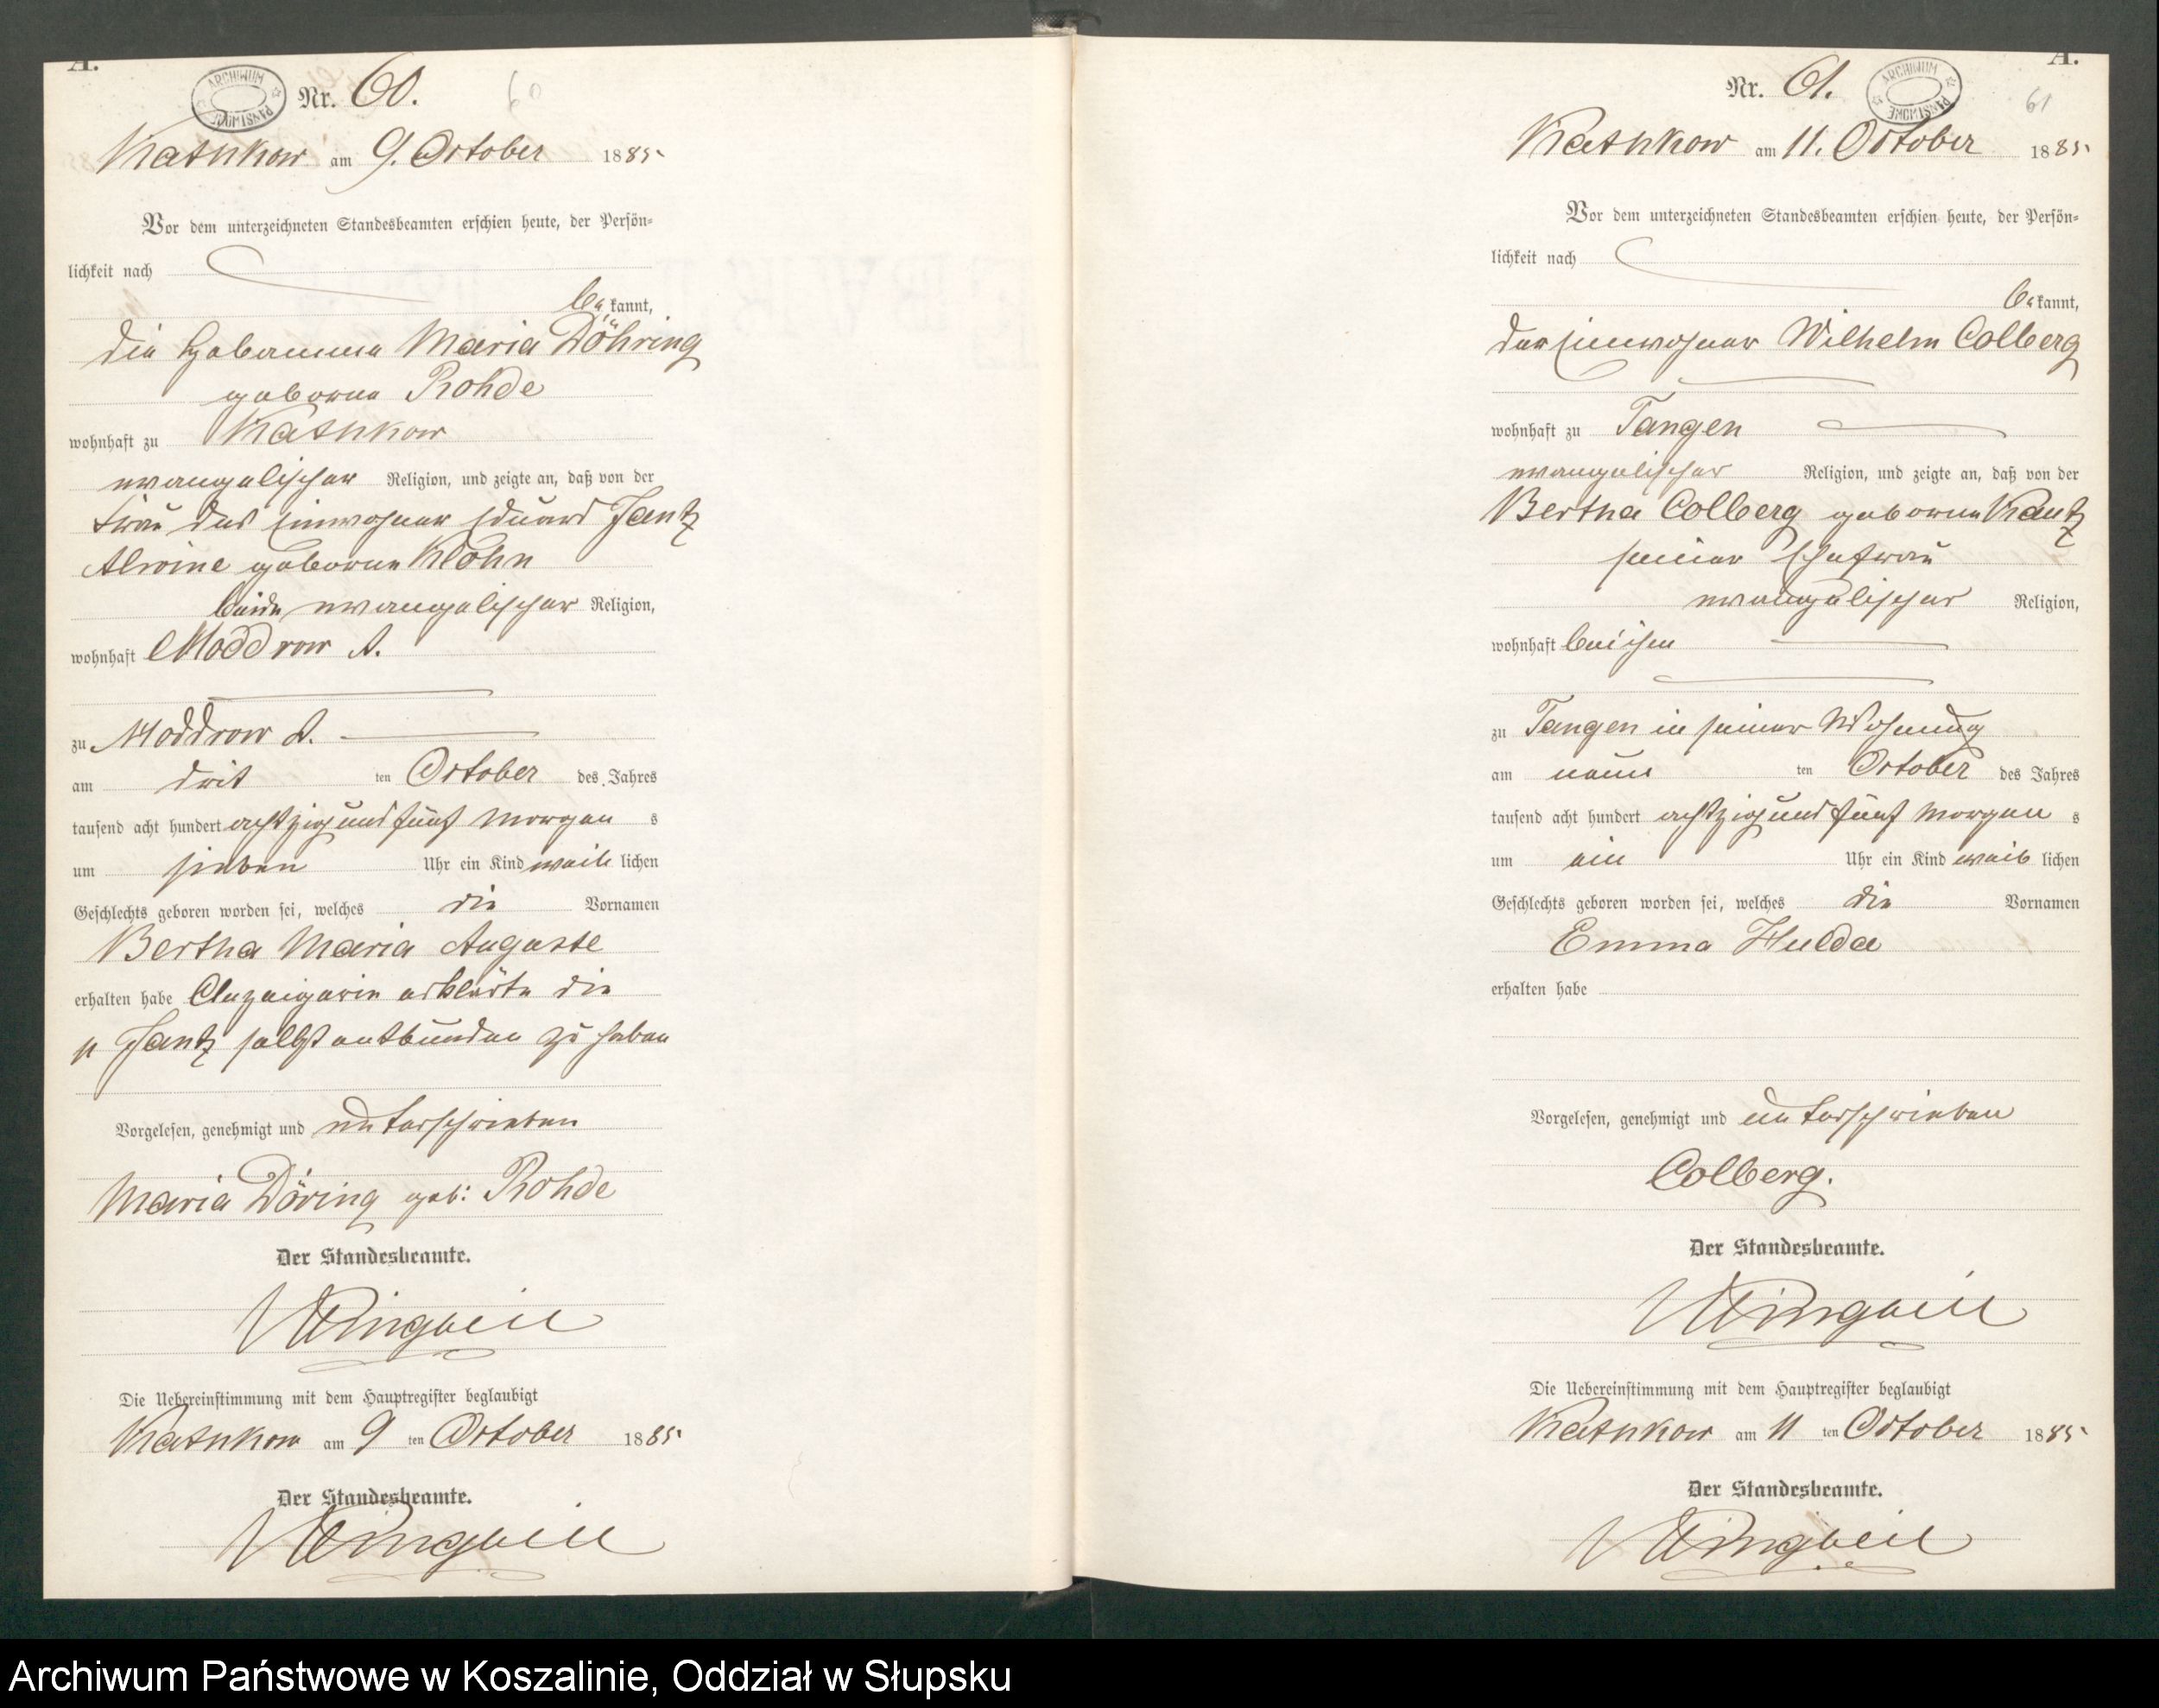 A.
ARCHIWUM PAŃSTWOWE
Nr. 60.
60
Kathkow am 9. October 1885
Vor dem unterzeichneten Standesbeamten erschien heute, der Persön-
lichkeit nach
bekannt,
die Hebamme Maria Döhring
geborne Rohde
wohnhaft zu Kathkow
evangelischer Religion, und zeigte an, daß von der
Frau des Einwohner Eduard Jantz
Alwine geborne Klohn
beide evangelischer Religion,
wohnhaft Moddrow A.
zu Moddrow A.
am drit ten October des Jahres
tausend acht hundert achtzig und fünf Morgen s
um sieben Uhr ein Kind weib lichen
Geschlechts geboren worden sei, welches die Vornamen
Bertha Maria Auguste
erhalten habe Anzeigerin erklärte die
p Jantz selbst entbunden zu haben
Vorgelesen, genehmigt und unterschrieben
Maria Döring geb: Rohde
Der Standesbeamte.
Die Uebereinstimmung mit dem Hauptregister beglaubigt
Kathkow am 9 ten October 1885
Der Standesbeamte.
A.
Nr. 61.
ARCHIWUM PAŃSTWOWE
61
Kathkow am 11. October 1885
Vor dem unterzeichneten Standesbeamten erschien heute, der Persön-
lichkeit nach
bekannt,
der Einwohner Wilhelm Colberg
wohnhaft zu Tangen
evangelischer Religion, und zeigte an, daß von der
Bertha Colberg geborne Kautz
seiner Ehefrau
evangelischer Religion,
wohnhaft bei ihm
zu Tangen in seiner Wohnung
am neun ten October des Jahres
tausend acht hundert achtzig und fünf Morgen s
um ein Uhr ein Kind weib lichen
Geschlechts geboren worden sei, welches die Vornamen
Emma Hulda
erhalten habe
Vorgelesen, genehmigt und unterschrieben
Colberg.
Der Standesbeamte.
Die Uebereinstimmung mit dem Hauptregister beglaubigt
Kathkow am 11 ten October 1885
Der Standesbeamte.
Archiwum Państwowe w Koszalinie, Oddział w Słupsku